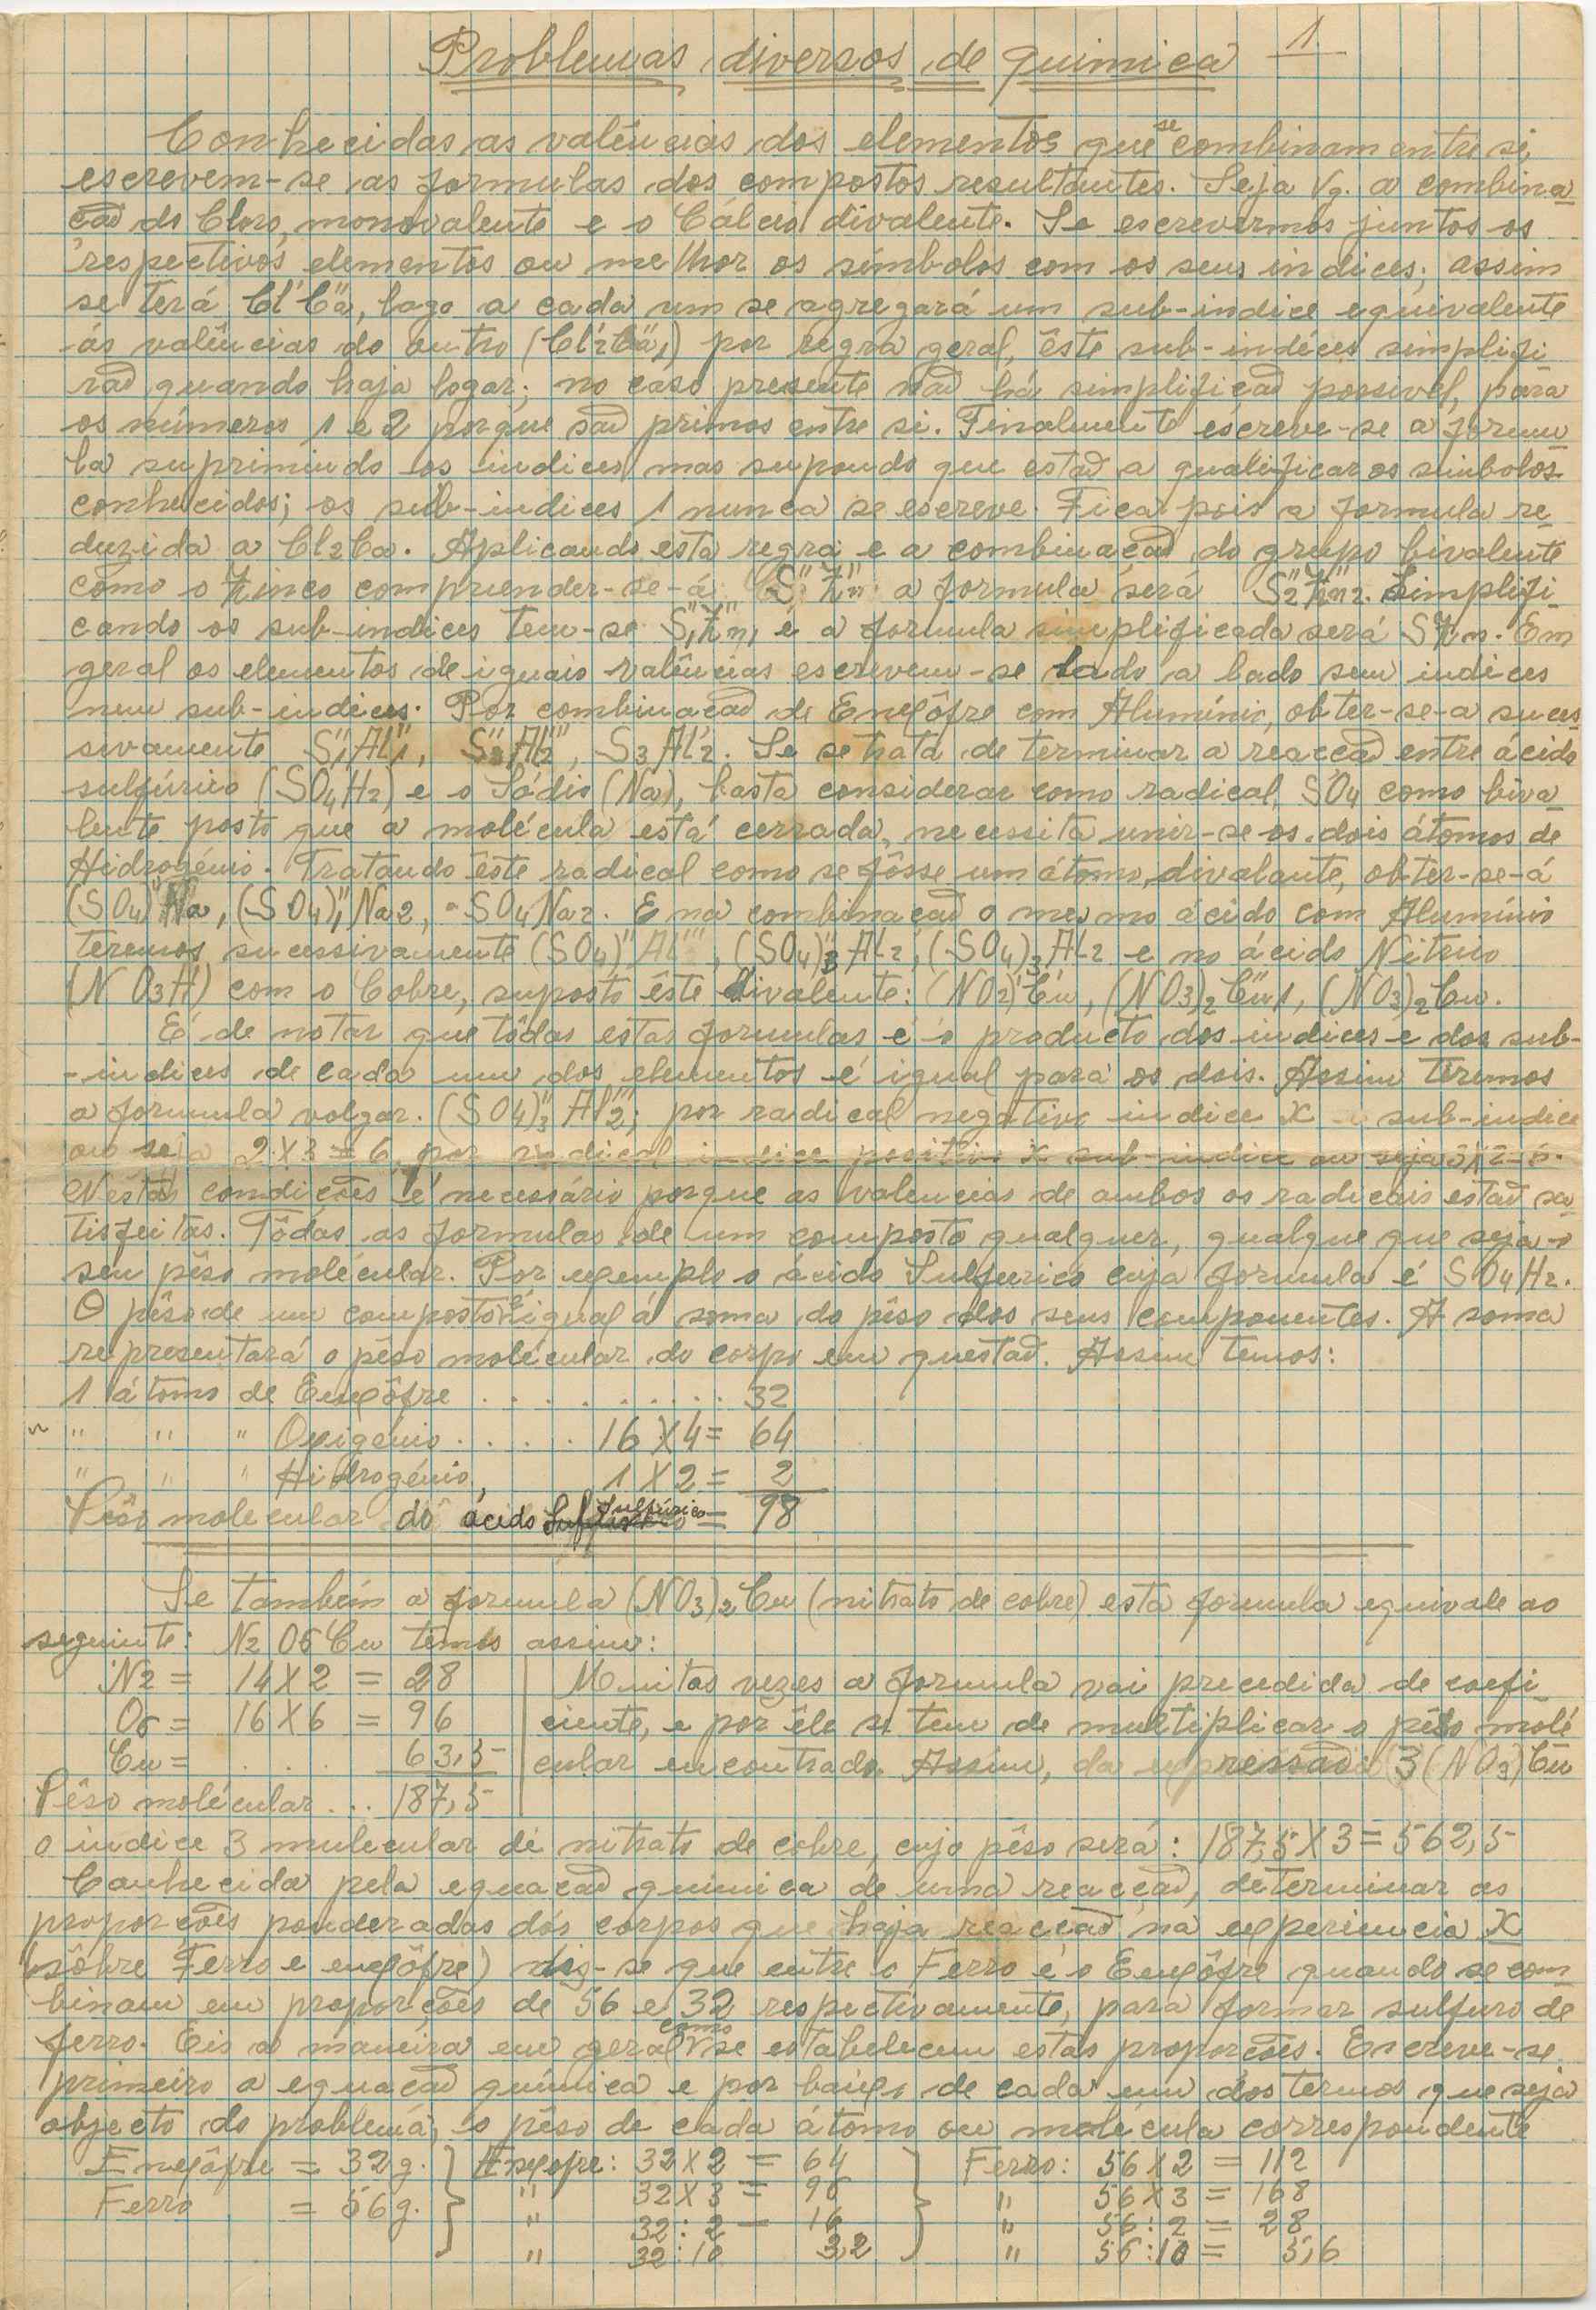 Problemas diversos de quimica 1
Conhecidas as valências dos elementos que se combinam entre si,
escrevem-se as formulas dos compostos resultantes. Seja Vg. a combina
ção do Cloro, monovalente e o Cálcio divalente. Se escrevermos juntos os
respectivos elementos ou melhor os símbolos com os seus indices; assim
se terá Cl'Ca'', logo a cada um se agregará um sub-indice equivalente
ás valências do outro (Cl'2Ca''1) por regra geral, êste sub-indíces simplifi
rão quando haja logar; no caso presente não há simplificação possivel, para
os números 1 e 2 porque são primos entre si. Finalmente escreve-se a formu
la suprimindo os indices mas supondo que estão a qualificar os simbolos
conhecidos; os sub-indices 1 nunca se escreve. Fica pois a formula re
duzida a Cl2Ca. Aplicando esta regra e a combinação do grupo bivalente
como o Zinco comprender-se-á S''Zn'' a formula será S''2Zn''2. Simplifi
cando os sub-indices tem-se S''1Zn''1 e a formula simplificada será SZn. Em
geral os elementos de iguais valências escrevem-se lado a lado sem indices
nem sub-indices. Por combinação de Enxôfre com Alumínio, obter-se-a suces
sivamente S''1Al'''1, S''3Al'''2, S3Al2. Se se trata de terminar a reacção entre ácido
sulfúrico (SO4H2) e o Sódio (Na), basta considerar como radical, SO4 como biva
lente posto que a molécula está cerrada, necessita unir-se os dois átomos de
Hidrogénio. Tratando êste radical como se fôsse um átomo, divalante, obter-se-á
(SO4)''Na, (SO4)''1Na2, SO4Na2. E na combinação o mesmo ácido com Alumínio
teremos sucessivamente (SO4)''Al''', (SO4)''3Al2, (SO4)3Al2 e no ácido Nitrico
(NO3H) com o Cobre, suposto êste divalente: (NO2)'Cu'', (NO3)2Cu''1, (NO3)2Cu.
É de notar que tôdas estas formulas é o producto dos indices e dos sub-
-indices de cada um dos elementos é igual para os dois. Assim teremos
a formula volgar. (SO4)''3Al'''2; por radical negativo indice X sub-indice
ou seja 2X3=6, por radical indice positivo X sub-indice ou seja 3X2=6.
Nestas condições é necessário porque as valencias de ambos os radicais estão sa
tisfeitas. Tôdas as formulas de um composto qualquer, qualque que seja o
seu pêso molécular. Por exemplo o ácido Sulfurico cuja formula é SO4H2.
O pêso de um composto é igual á soma do pêso dos seus componentes. A soma
representará o pêso molécular do corpo em questão. Assim temos:
1 átomo de Enxôfre . . . . . . . . . 32
" " " Oxigénio . . . . . 16X4= 64
" " " Hidrogénio, 1X2= 2
Pêso molecular do ácido Sulfúrico = 98
Se também a formula (NO3)2Cu (nitrato de cobre) esta formula equivale ao
seguinte: N2O6Cu temos assim:
N2 = 14X2 = 28
O6 = 16X6 = 96
Cu = . . . . 63,5
Pêso molécular . . . 187,5
Muitas vezes a formula vai precedida de coefi
ciente, e por êle se tem de multiplicar o pêso molé
cular encontrado. Assim, da expressão 3(NO3)Cu
o indice 3 mulecular de nitrato de cobre, cujo pêso será: 187,5X3=562,5
Conhecida pela equação quimica de uma reacção, determinar as
proporções ponderadas dos corpos que haja reacção na experiencia X
(sôbre Ferro e enxôfre) diz-se que entre o Ferro e o Enxôfre quando se com
binam em proporções de 56 e 32 respectivamente, para formar sulfuro de
ferro. Eis a maneira em geral como se estabelecem estas proporções. Escreve-se
primeiro a equação química e por baixo de cada um dos termos que seja
objecto do problema, o pêso de cada átomo ou molécula correspondente
Enxôfre = 32g.
Ferro = 56g.
Enxofre: 32X2 = 64
" 32X3 = 96
" 32:2 = 16
" 32:10 3,2
Ferro: 56X2 = 112
" 56X3 = 168
" 56:2 = 28
" 56:10 = 5,6